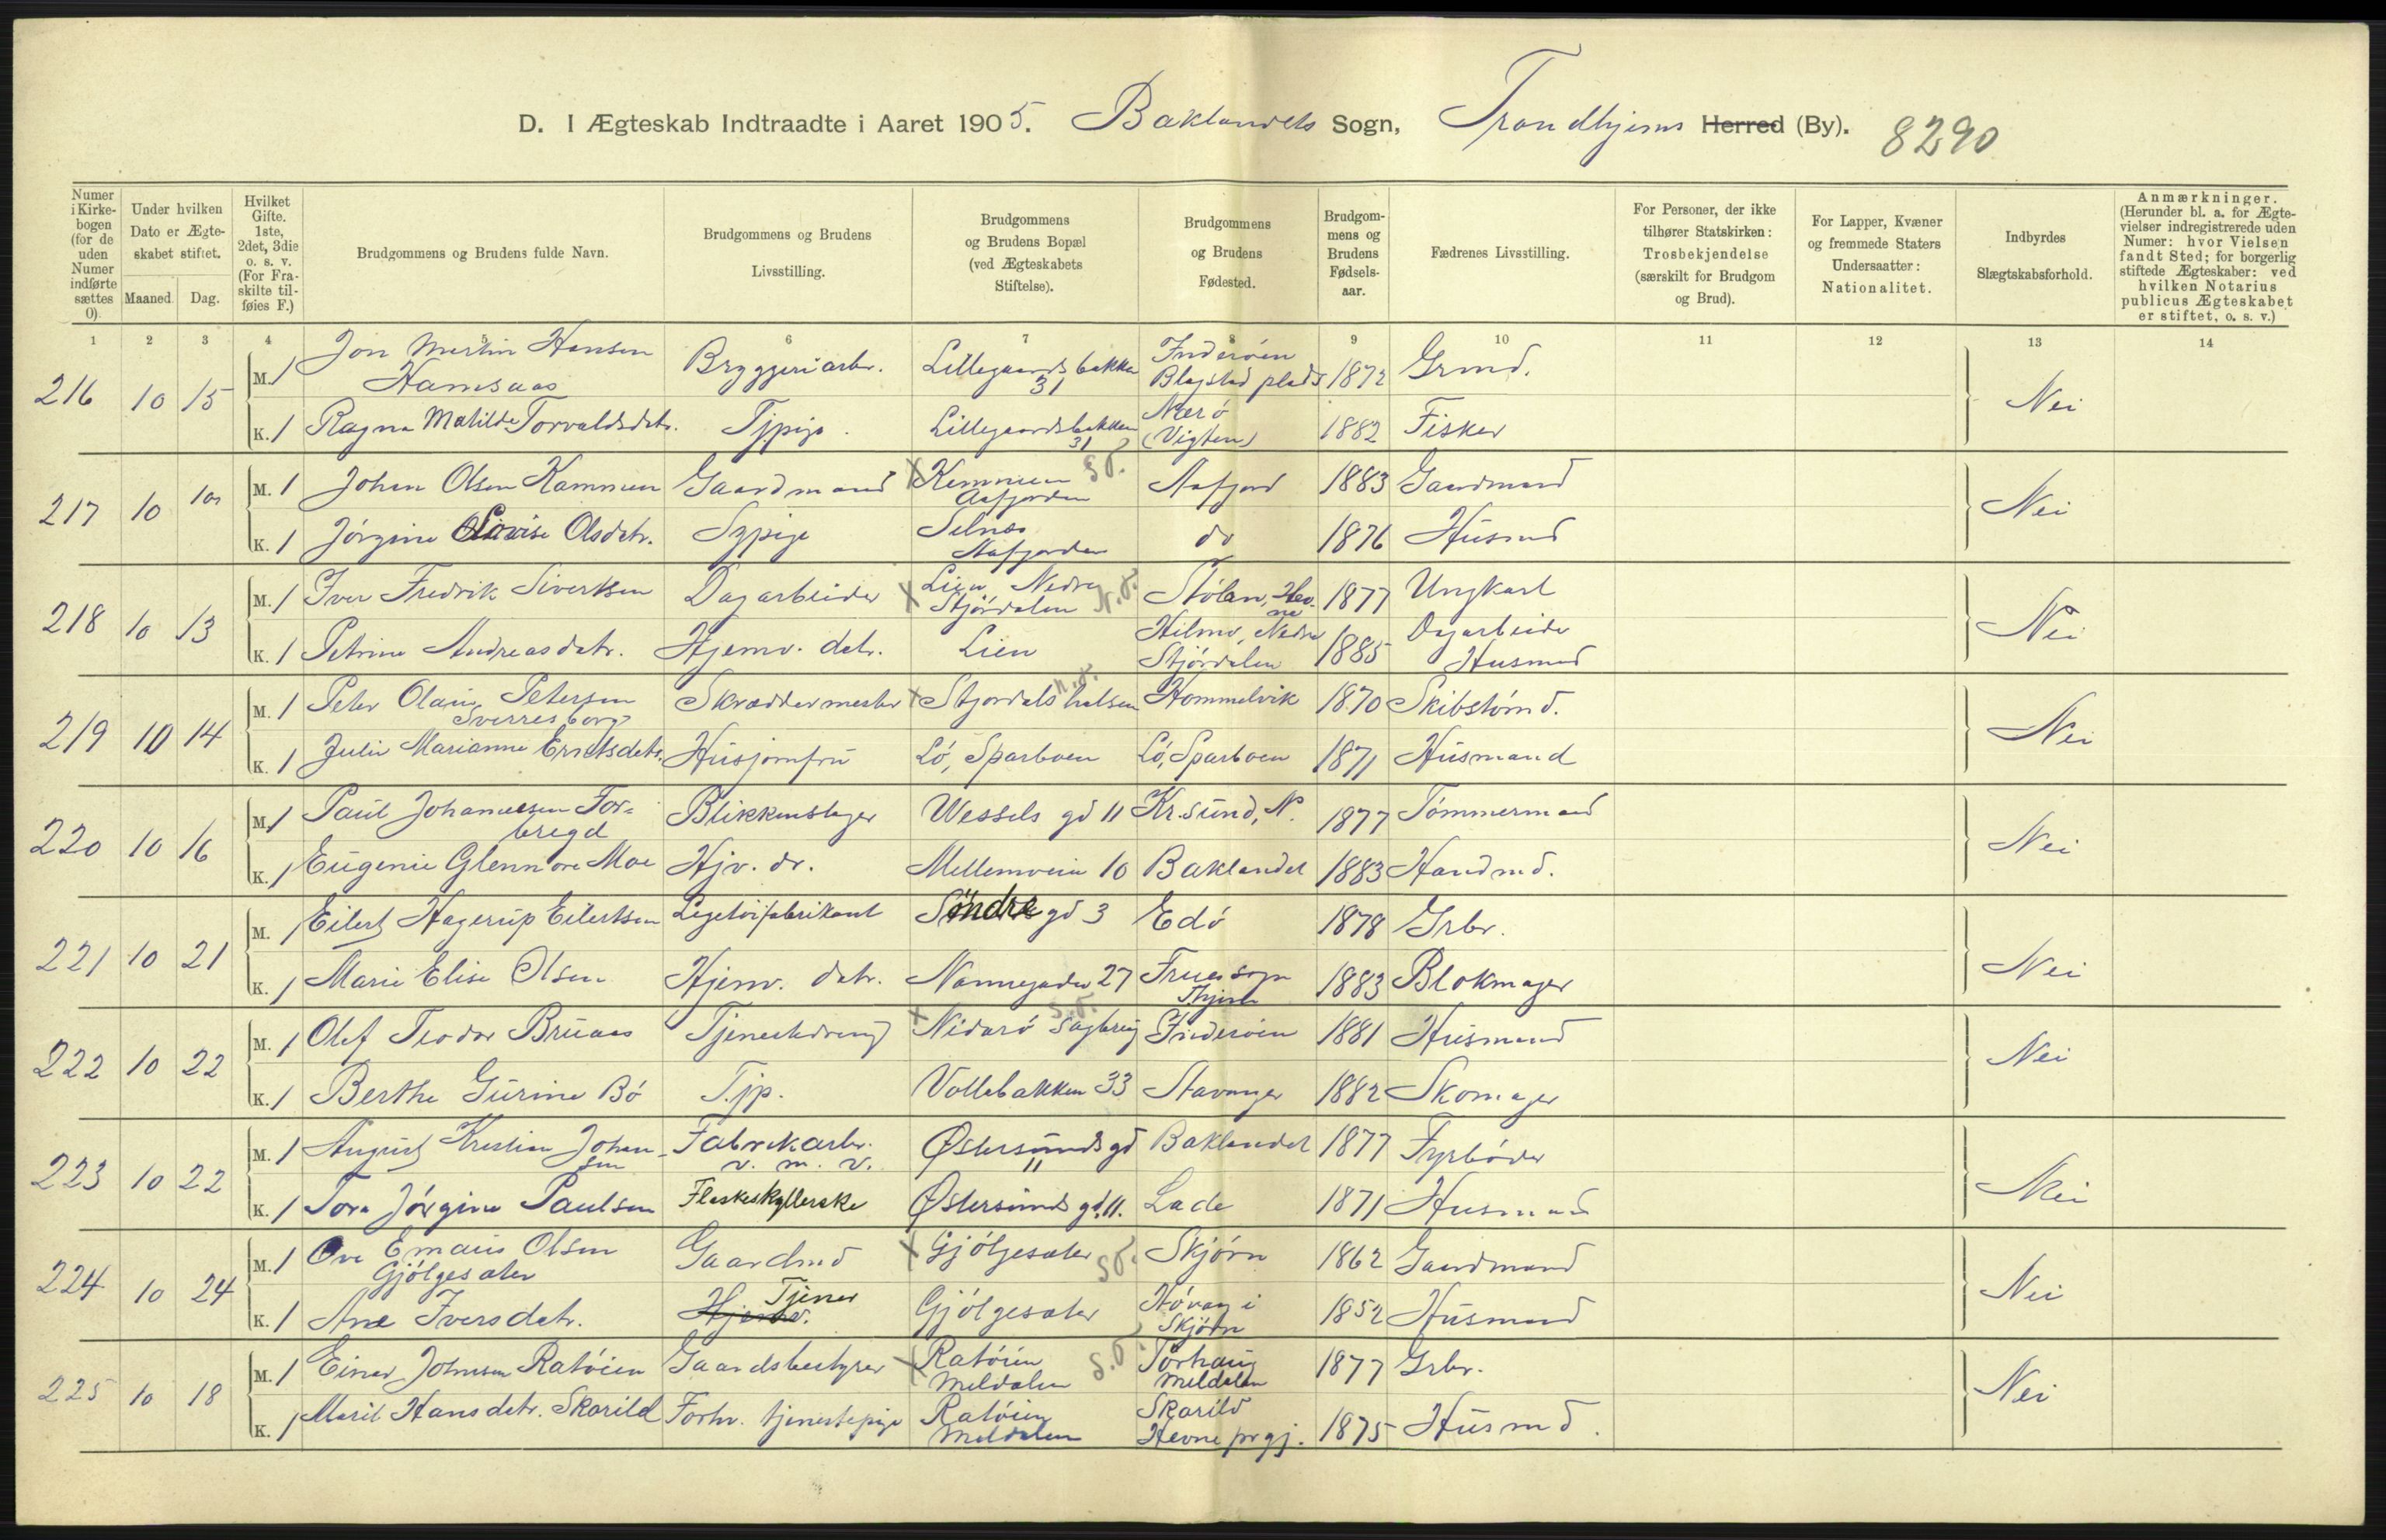 D. I Ægteskab Indtraadte i Aaret 1905. Baklandets Sogn, Trondhjems Herred (By). 8290
Numer i Kirkebogen (for de uden Numer indførte sættes 0).
Under hvilken Dato er Ægteskabet stiftet.
Maaned. Dag.
Hvilket Gifte. 1ste, 2det, 3die o. s. v. (For Fraskilte tilføies F.)
Brudgommens og Brudens fulde Navn.
Brudgommens og Brudens Livsstilling.
Brudgommens og Brudens Bopæl (ved Ægteskabets Stiftelse).
Brudgommens og Brudens Fødested.
Brudgommens og Brudens Fødselsaar.
Fædrenes Livsstilling.
For Personer, der ikke tilhører Statskirken: Trosbekjendelse (særskilt for Brudgom og Brud).
For Lapper, Kvæner og fremmede Staters Undersaatter: Nationalitet.
Indbyrdes Slægtskabsforhold.
Anmærkninger. (Herunder bl. a. for Ægtevielser indregistrerede uden Numer: hvor Vielsen fandt Sted; for borgerlig stiftede Ægteskaber: ved hvilken Notarius publicus Ægteskabet er stiftet, o. s. v.)
1 2 3 4 5 6 7 8 9 10 11 12 13 14
216 10 15 M. 1 Jon Martin Hansen Hamsaas Bryggeriarbr. Lillegaardsbakken 31 Inderøen Blagstad plads 1872 Grmd. Nei
K. 1 Ragna Matilde Torvaldsdatr. Tjpige. Lillegaardsbakken 31 Nærø (Vigten) 1882 Fisker
217 10 M. 1 Johan Olsen Kammen Gaardmand X Kammen Aafjorden S T. Aafjord 1883 Gaardmand Nei
K. 1 Jörgine Lovise Olsdatr. Sypige Selnes Aafjorden do 1876 Husmd
218 10 13 M. 1 Iver Fredrik Sivertsen Dagarbeider X Lien, Nedre Stjördalen N.T. Stölan, Hevne 1877 Ungkarl Nei
K. 1 Petrine Andreasdatr. Hjemv. datr. Lien Hilmo, Nedre Stjördalen 1885 Dagarbeider Husmd
219 10 14 M. 1 Peter Olaus Petersen Sverresborg Skræddermester X Stjordalshalsen N.T. Hommelvik 1870 Skibstömd. Nei
K. 1 Julie Marianne Ernstsdatr. Husjomfru Lö, Sparboen Lö, Sparboen 1871 Husmand
220 10 16 M. 1 Paul Johannessen Forbregd Blikkenslager Wessels gd 11 Kr.sund, N. 1877 Tömmermand Nei
K. 1 Eugenie Glennore Moe Hjv. dr. Mellemveien 10 Baklandet 1883 Handmd.
221 10 21 M. 1 Eilert Hagerup Eilertsen Legetöifabrikant Söndre gd 3 Edö 1878 Grbr. Nei
K. 1 Marie Elise Olsen Hjemv. datr. Nannegaden 27 Frue sogn Thjem 1883 Blokmager
222 10 22 M. 1 Olef Teodor Bruaas Tjenestedreng X Nidarö Sagbrug S.T. Inderöen 1881 Husmand Nei
K. 1 Berthe Gurine Bö Tjp. Vollebakken 33 Stavanger 1882 Skomager
223 10 22 M. 1 August Kristian Johansen Fabrikarbr. v. m. v. Østersunds gd 11 Baklandet 1877 Fyrböder Nei
K. 1 Tora Jörgine Paulsen Flaskeskyllerske Østersunds gd. 11. Lade 1871 Husmand
224 10 24 M. 1 Ove Emaus Olsen Gjölgesæter Gaardmd X Gjölgesæter S T. Skjörn 1862 Gaardmand Nei
K. 1 Ane Iversdatr. Hjemv. Tjener Gjölgesæter i Skjörn 1852 Husmand
225 10 18 M. 1 Einar Johnsen Ratöien Gaardsbestyrer X Ratöien Meldalen S.T. Torhaug Meldalen 1877 Grbr. Nei
K. 1 Marit Hansdatr. Skarild Forhv. tjenestepige Ratöien Meldalen Skarild Hevne prgj. 1875 Husmd.